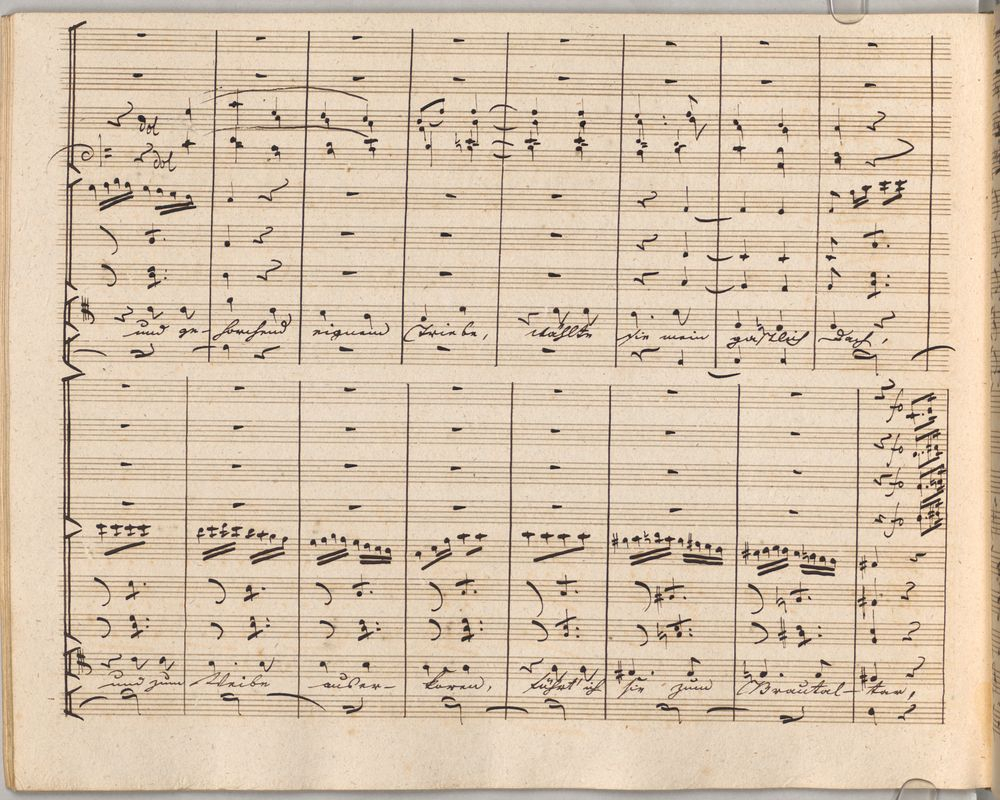 dol
dol
und ge- horchend eignem Triebe, wählte sie mein gastlich Dach,
fo
fo
fo
fo
und zum Weibe auser- koren, führt' ich sie zum Brautal- tar,